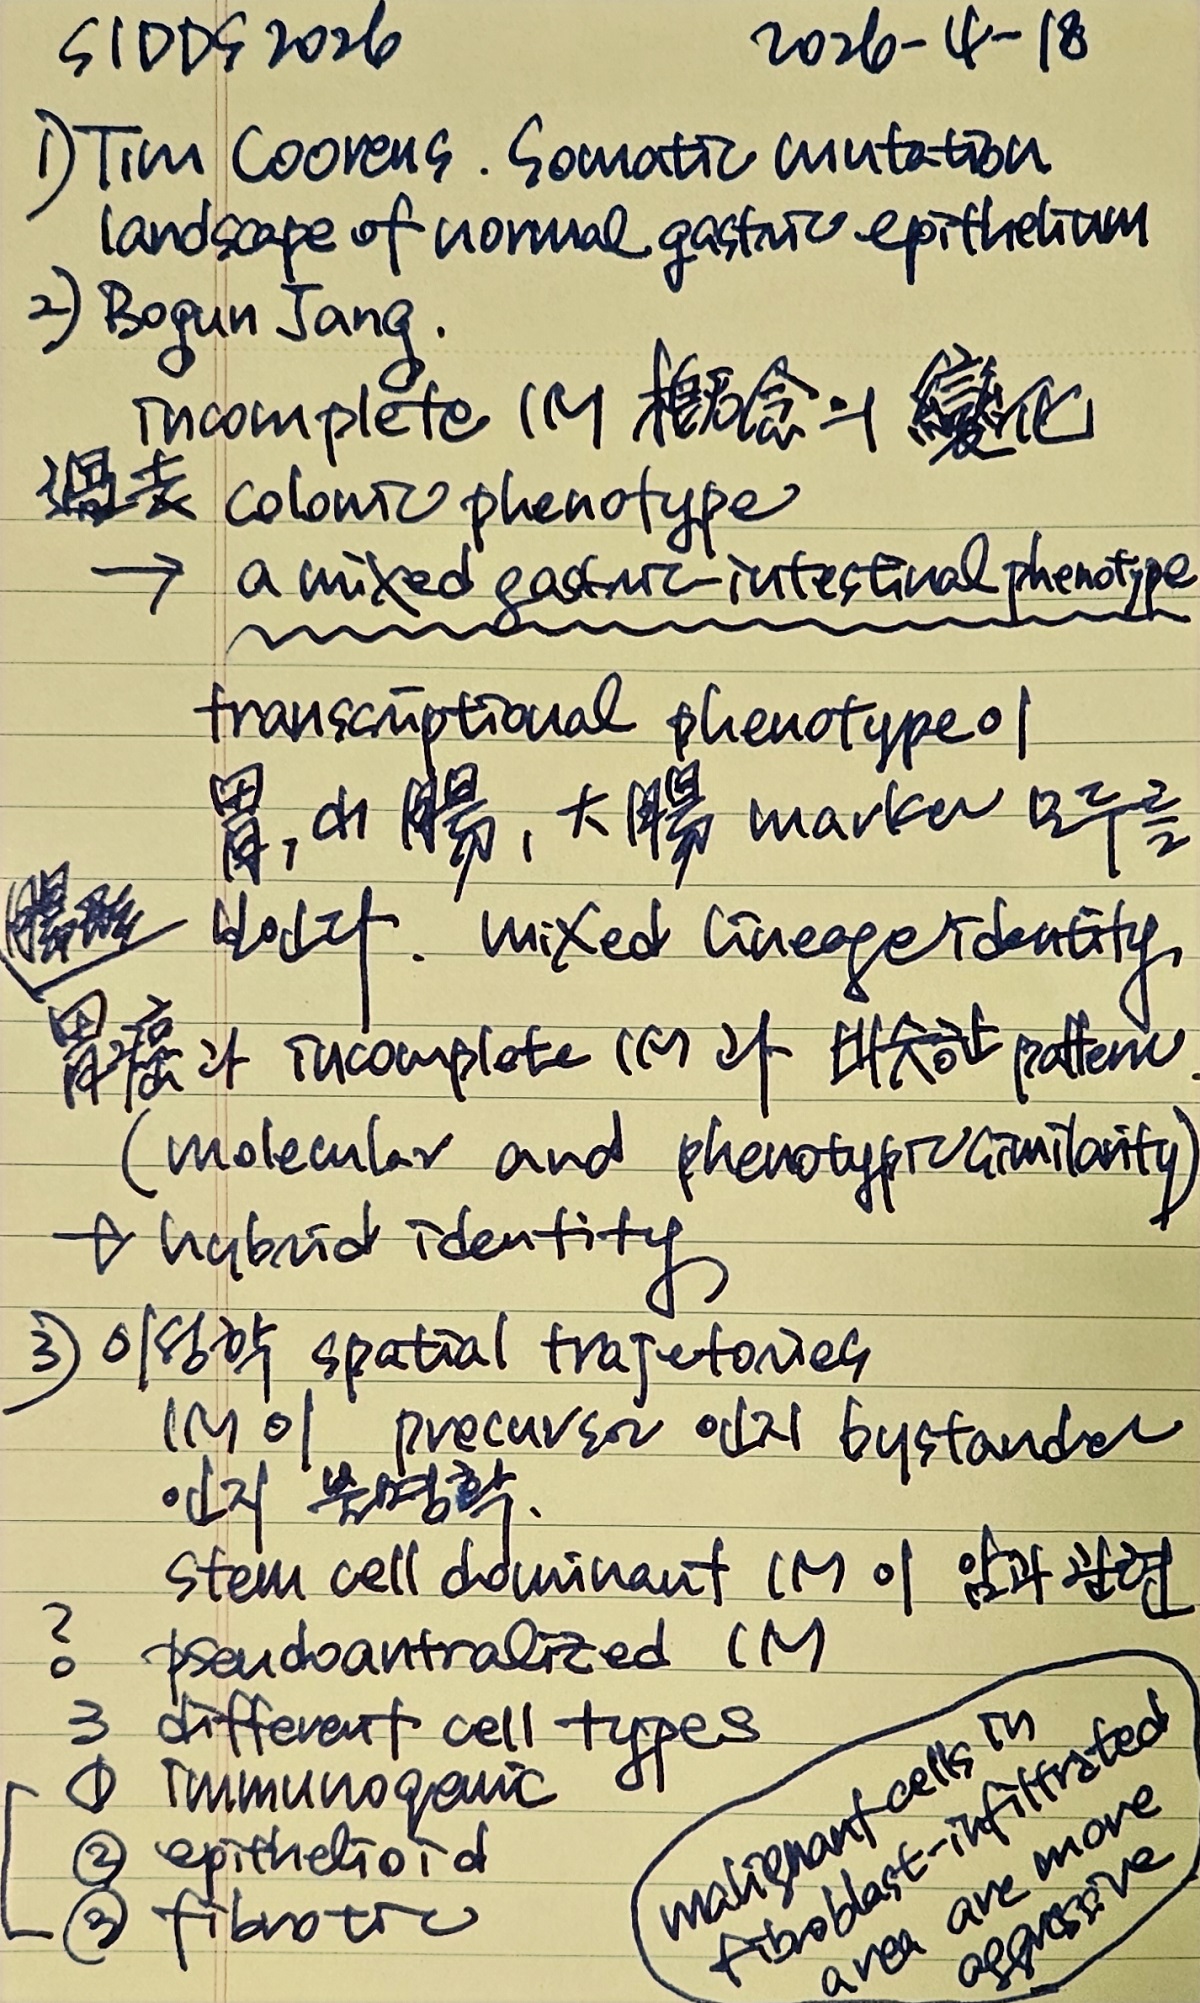 SIDDS 2026 2026-4-18
1) Tim Coorens. Somatic mutation
landscape of normal gastric epithelium
2) Bogun Jang.
incomplete IM 槪念의 變化
過去 colonic phenotype
→ a mixed gastric-intestinal phenotype
transcriptional phenotype이
胃, 小腸, 大腸 marker 모두를
보인다. mixed lineage identity,
胃癌과 incomplete IM과 비슷한 pattern.
(molecular and phenotypic similarity)
→ hybrid identity
3) 이성학 spatial trajetories
IM이 precursor 인지 bystander
인지 불명확.
stem cell dominant IM이 암과 관련
? pseudoantralized IM
3 different cell types
① immunogenic
② epithelioid
③ fibrotic
malignant cells in
fibroblast-infiltrated
area are more
aggressive